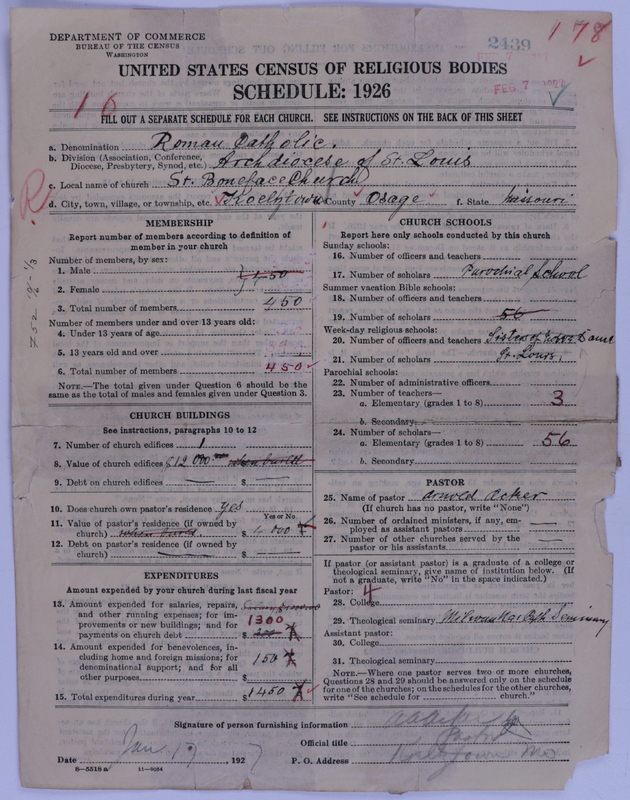 DEPARTMENT OF COMMERCE
BUREAU OF THE CENSUS
WASHINGTON
2439
178
FEB 7
UNITED STATES CENSUS OF RELIGIOUS BODIES
SCHEDULE: 1926
16
FILL OUT A SEPARATE SCHEDULE FOR EACH CHURCH. SEE INSTRUCTIONS ON THE BACK OF THIS SHEET
a. Denomination Roman Catholic.
b. Division (Association, Conference, Diocese, Presbytery, Synod, etc.) Archdiocese of St. Louis
c. Local name of church St. Boneface Church
d. City, town, village, or township, etc. Koeltztown County Osage f. State Missouri
R
MEMBERSHIP
Report number of members according to definition of
member in your church
Number of members, by sex:
1. Male
450
2. Female
3. Total number of members 450
Number of members under and over 13 years old:
4. Under 13 years of age
5. 13 years old and over
6. Total number of members 450
NOTE.—The total given under Question 6 should be the
same as the total of males and females given under Question 3.
CHURCH BUILDINGS
See instructions, paragraphs 10 to 12
7. Number of church edifices 1
8. Value of church edifices $12 000 when built
9. Debt on church edifices — $ —
10. Does church own pastor's residence yes
Yes or No
11. Value of pastor's residence (if owned by
church) when build. $ 4000
12. Debt on pastor's residence (if owned by
church) — $ —
EXPENDITURES
Amount expended by your church during last fiscal year
13. Amount expended for salaries, repairs,
and other running expenses; for im-
provements or new buildings; and for
payments on church debt $ 1300
14. Amount expended for benevolences, in-
cluding home and foreign missions; for
denominational support; and for all
other purposes $ 150
15. Total expenditures during year $ 1450
CHURCH SCHOOLS
Report here only schools conducted by this church
Sunday schools:
16. Number of officers and teachers
17. Number of scholars Parochial School
Summer vacation Bible schools:
18. Number of officers and teachers
19. Number of scholars 56
Week-day religious schools:
20. Number of officers and teachers Sisters of Notre Dame
21. Number of scholars St. Louis,
Parochial schools:
22. Number of administrative officers
23. Number of teachers—
a. Elementary (grades 1 to 8) 3
b. Secondary
24. Number of scholars—
a. Elementary (grades 1 to 8) 56
b. Secondary
PASTOR
25. Name of pastor Arnold Acker
(If church has no pastor, write "None")
26. Number of ordained ministers, if any, em-
ployed as assistant pastors —
27. Number of other churches served by the
pastor or his assistants —
If pastor (or assistant pastor) is a graduate of a college or
theological seminary, give name of institution below. (If
not a graduate, write "No" in the space indicated.)
Pastor: 4
28. College
29. Theological seminary Milwaukee Cath Seminary
Assistant pastor:
30. College
31. Theological seminary
NOTE.—Where one pastor serves two or more churches,
Questions 28 and 29 should be answered only on the schedule
for one of the churches; on the schedules for the other churches,
write "See schedule for church."
Signature of person furnishing information
Official title Pastor
Date Jan 17, 1927 P. O. Address Koeltztown Mo
8—5518a 11—9034